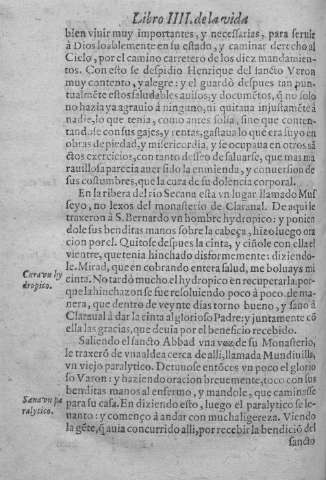 Libro IIII. de la vida
bien viuir muy importantes, y necessarias, para seruir
à Dios loablemente en su estado, y caminar derecho al
Cielo, por el camino carretero de los diez mandamien-
tos. Con esto se despidio Henrique del sancto Varon
muy contento, y alegre: y el guardò despues tan pun-
tualmẽte estos saludables auisos, y documẽtos, q̃ no solo
no hazia ya agrauio à ninguno, ni quitaua injustamẽte à
nadie, lo que tenia, como antes solia, sino que conten-
tandole con sus gajes, y rentas, gastaua lo que era suyo en
obras de piedad, y misericordia, y se ocupaua en otros sã-
ctos exercicios, con tanto desseo de saluarse, que mas ma
rauillosa parecia auer sido la enmienda, y conuersion de
sus costumbres, que la cura de su dolencia corporal.
En la ribera del rio Secana està vn lugar llamado Mus
seyo, no lexos del monasterio de Claraual. De aqui le
traxeron à S. Bernardo vn hombre hydropico: y ponien
dole sus benditas manos sobre la cabeça, hizo luego ora
cion por el. Quitose despues la cinta, y ciñole con ella el
vientre, que tenia hinchado disformemente: diziendo-
le. Mirad, que en cobrando entera salud, me boluays mi
cinta. No tardò mucho el hydropico en recuperarla, por-
que la hinchazon se fue resoluiendo poco à poco, de ma-
nera, que dentro de veynte dias torno bueno, y sano à
Claraual à dar la cinta al glorioso Padre: y juntamente cõ
ella las gracias, que deuia por el beneficio recebido.
Cura vn hy
dropico.
Saliendo el sancto Abbad vna vez de su Monasterio,
le traxerõ de vna aldea cerca de alli, llamada Munduilla,
vn viejo paralytico. Detuuose entõces vn poco el glorio
so Varon: y haziendo oracion breuemente, toco con sus
benditas manos al enfermo, y mandole, que caminasse
para su casa. En diziendo esto, luego el paralytico se le-
uanto: y començò à andar con mucha ligereza. Viendo
la gẽte, q̃ auia concurrido alli, por recebir la bendiciõ del
sancto
Sana vn pa
ralytico.